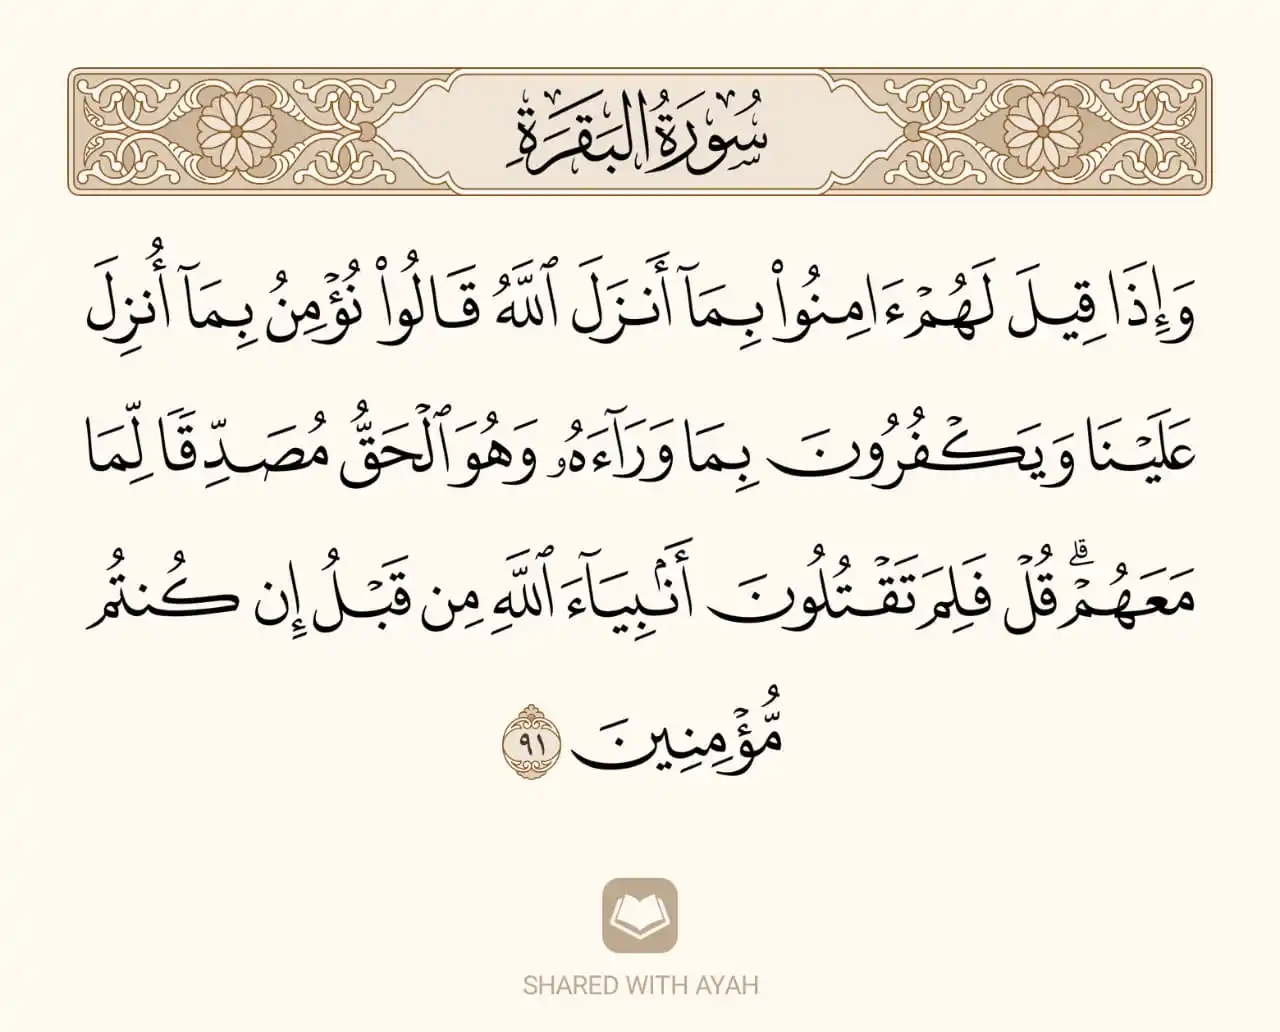 سُورَةُ البَقَرَةِ
وَإِذَا قِيلَ لَهُمْ ءَامِنُوا۟ بِمَآ أَنزَلَ ٱللَّهُ قَالُوا۟ نُؤْمِنُ بِمَآ أُنزِلَ
عَلَيْنَا وَيَكْفُرُونَ بِمَا وَرَآءَهُۥ وَهُوَ ٱلْحَقُّ مُصَدِّقًا لِّمَا
مَعَهُمْ ۗ قُلْ فَلِمَ تَقْتُلُونَ أَنۢبِيَآءَ ٱللَّهِ مِن قَبْلُ إِن كُنتُم
مُّؤْمِنِينَ ٩١
SHARED WITH AYAH